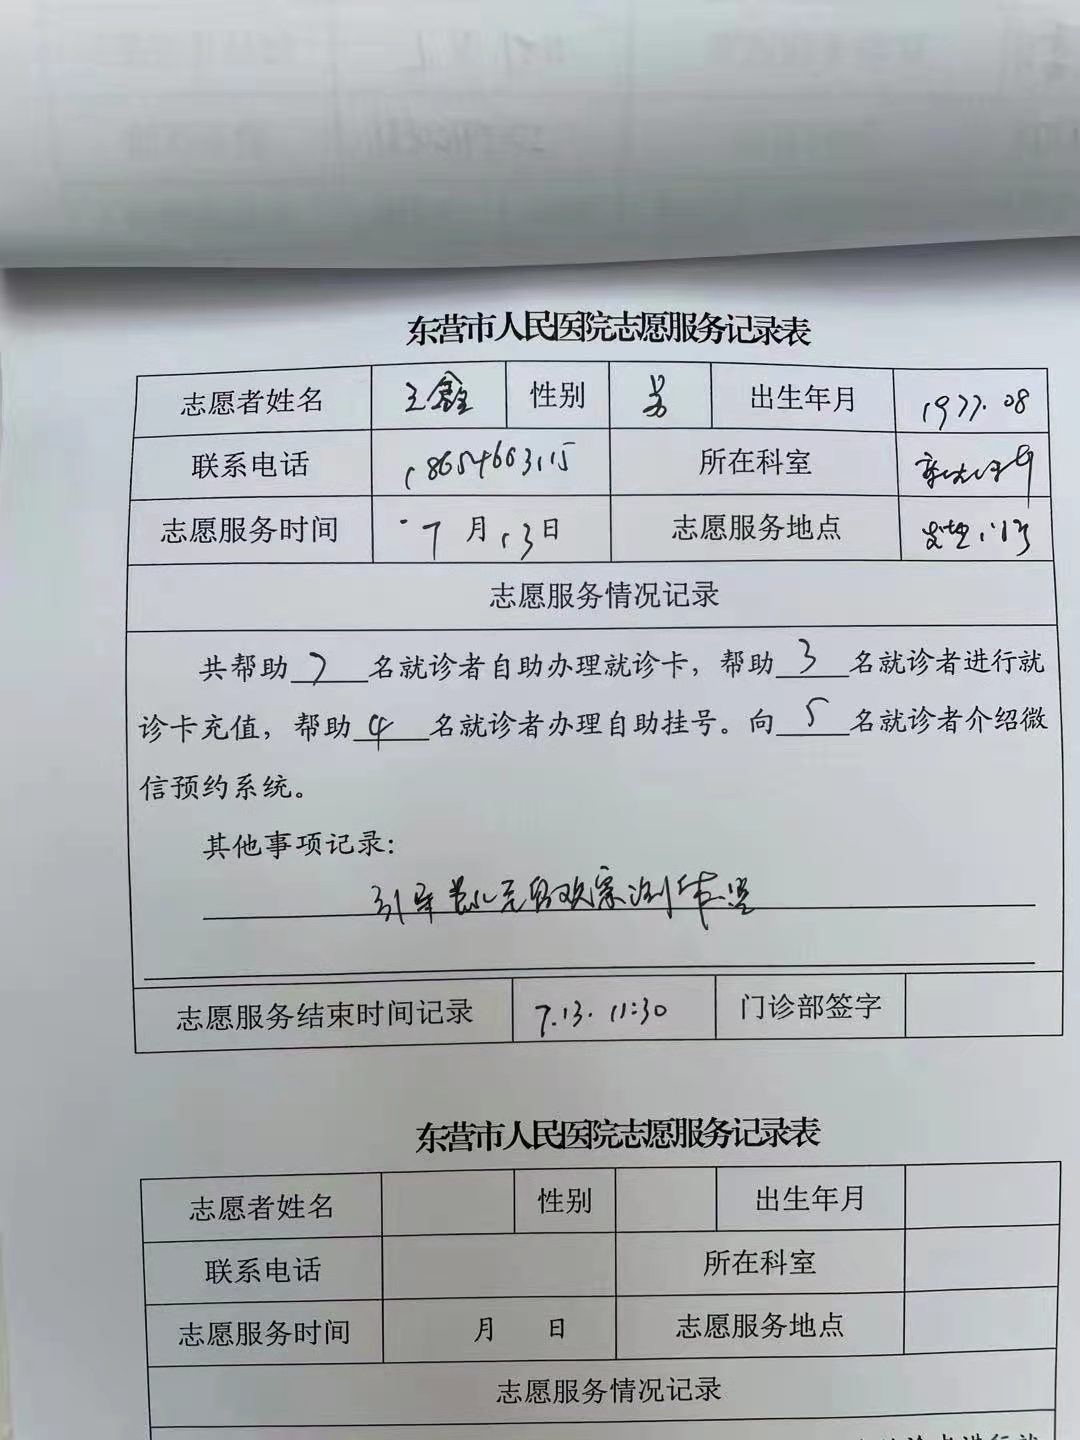 东营市人民医院志愿服务记录表
志愿者姓名 王鑫 性别 男 出生年月 1977.08
联系电话 18654663115 所在科室
志愿服务时间 7月13日 志愿服务地点
志愿服务情况记录
共帮助 7 名就诊者自助办理就诊卡，帮助 3 名就诊者进行就
诊卡充值，帮助 4 名就诊者办理自助挂号。向 5 名就诊者介绍微
信预约系统。
其他事项记录：
引导 测体温
志愿服务结束时间记录 7.13. 11:30 门诊部签字
东营市人民医院志愿服务记录表
志愿者姓名 性别 出生年月
联系电话 所在科室
志愿服务时间 月 日 志愿服务地点
志愿服务情况记录